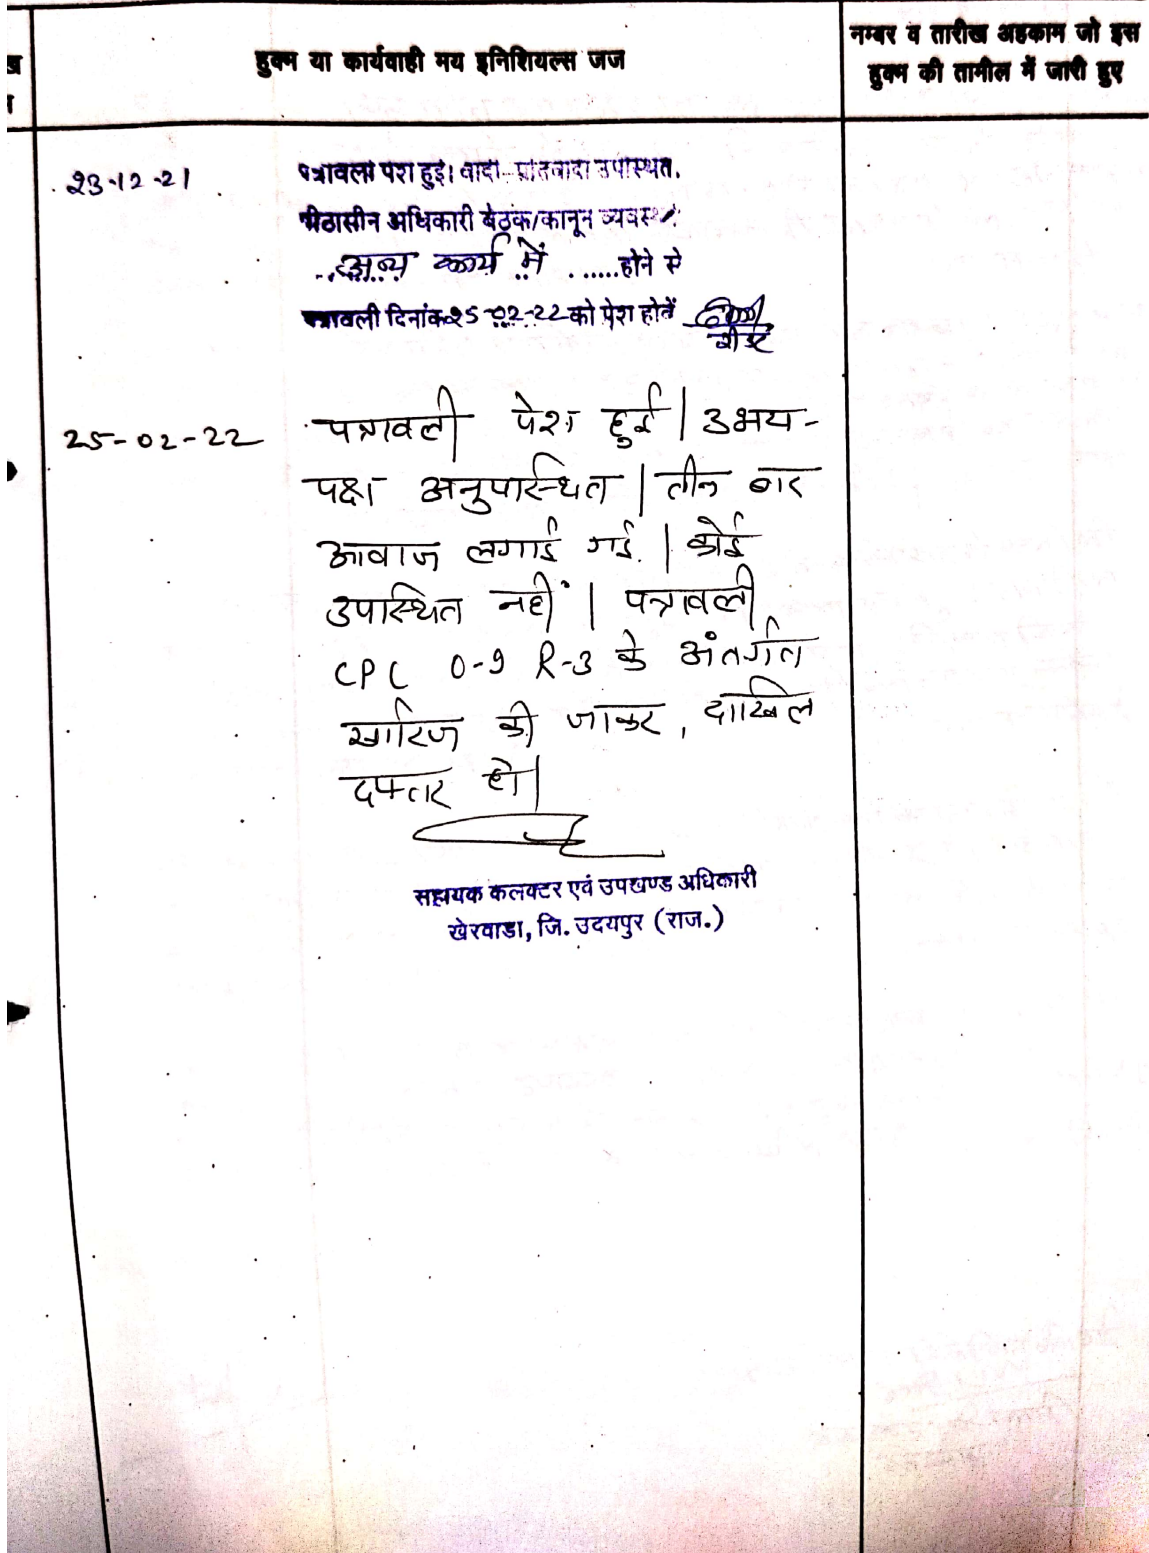 ख
हुक्म या कार्यवाही मय इनिशियल्स जज
नम्बर व तारीख अहकाम जो इस
हुक्म की तामील में जारी हुए
23-12-21
पत्रावली पेश हुई। वादी प्रतिवादी उपस्थित.
पीठासीन अधिकारी बैठक/कानून व्यवस्था
अन्य कार्य में ......होने से
पत्रावली दिनांक 25-02-22 को पेश होवें
रीडर
25-02-22 पत्रावली पेश हुई | उभय-
पक्ष अनुपस्थित | तीन बार
आवाज लगाई गई. | कोई
उपस्थित नहीं | पत्रावली
CPC O-9 R-3 के अंतर्गत
खारिज की जाकर, दाखिल
दफ्तर हो |
सहायक कलक्टर एवं उपखण्ड अधिकारी
खेरवाडा, जि. उदयपुर (राज.)